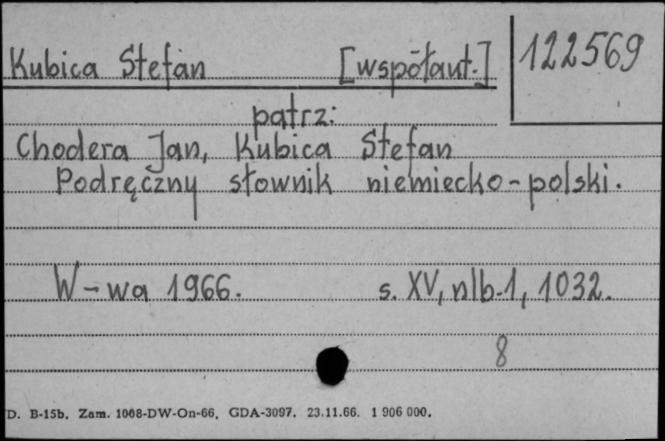 Kubica Stefan [współaut.] 122569
patrz:
Chodera Jan, Kubica Stefan
Podręczny słownik niemiecko-polski.
W-wa 1966. s. XV, nlb. 1, 1032.
8
D. B-15b. Zam. 1008-DW-On-66. GDA-3097. 23.11.66. 1 906 000.